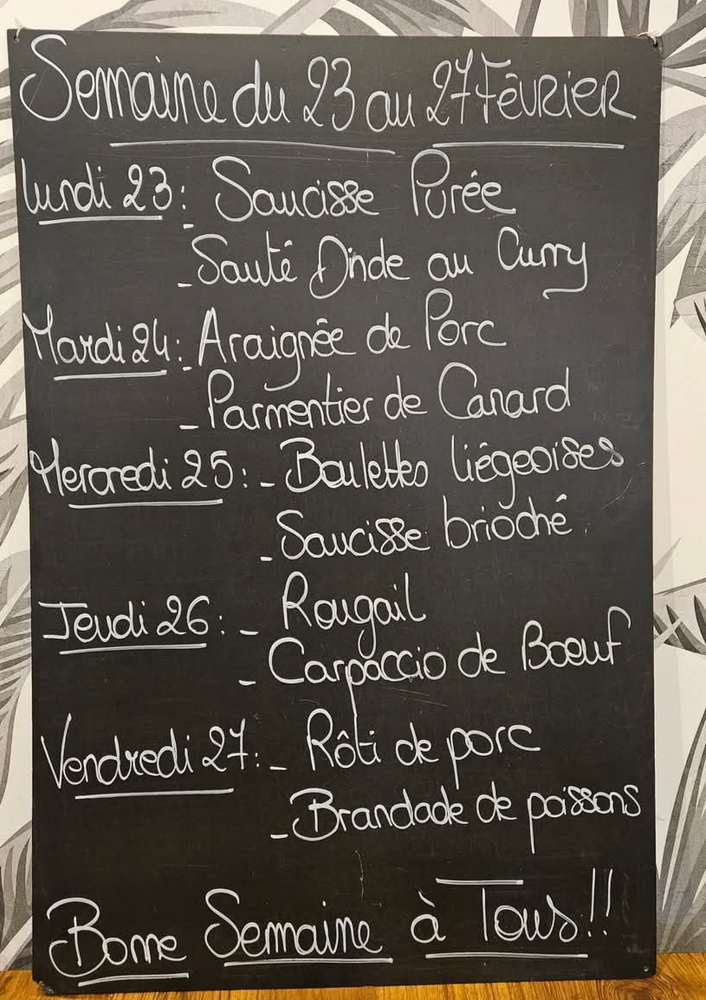 Semaine du 23 au 27 FÉVRIER
Lundi 23 : - Saucisse Purée
- Sauté Dinde au Curry
Mardi 24 : - Araignée de Porc
- Parmentier de Canard
Mercredi 25 : - Boulettes liégeoises
- Saucisse brioché
Jeudi 26 : - Rougail
- Carpaccio de Boeuf
Vendredi 27 : - Rôti de porc
- Brandade de poissons
Bonne Semaine à Tous !!